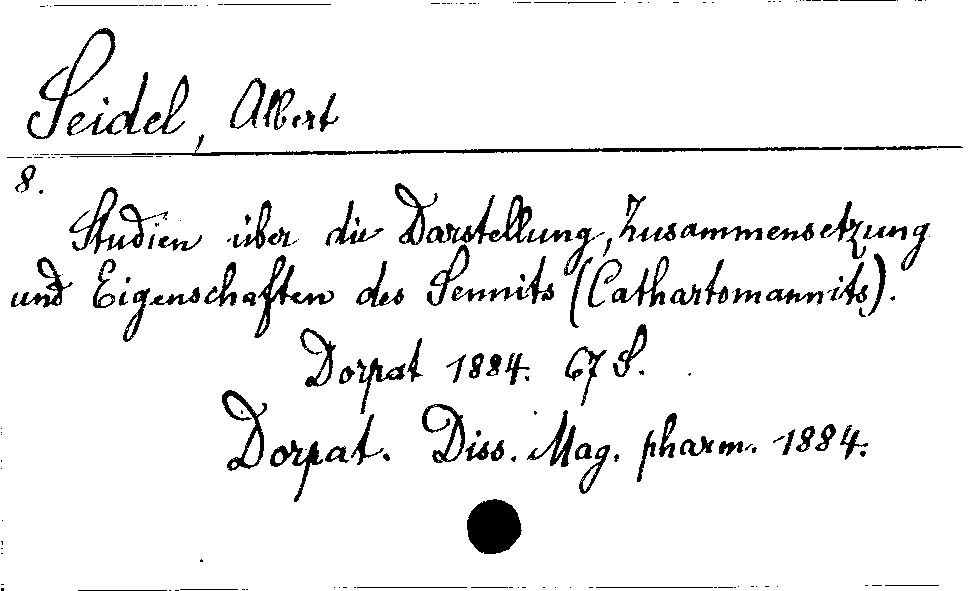 Seidel, Albert
8.
Studien über die Darstellung, Zusammensetzung
und Eigenschaften des Sennits (Cathartomannits).
Dorpat 1884. 67 S.
Dorpat. Diss. Mag. pharm. 1884.